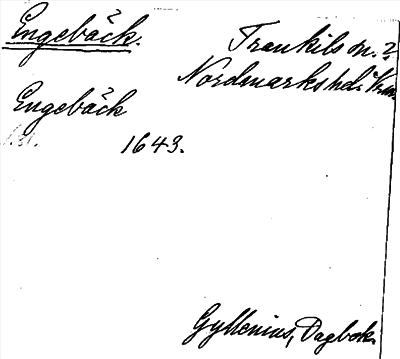 Engebäck.
Trankils sn. ?
Nordmarks hd.
Engebäck
1643.
Gyllenius, Dagbok.